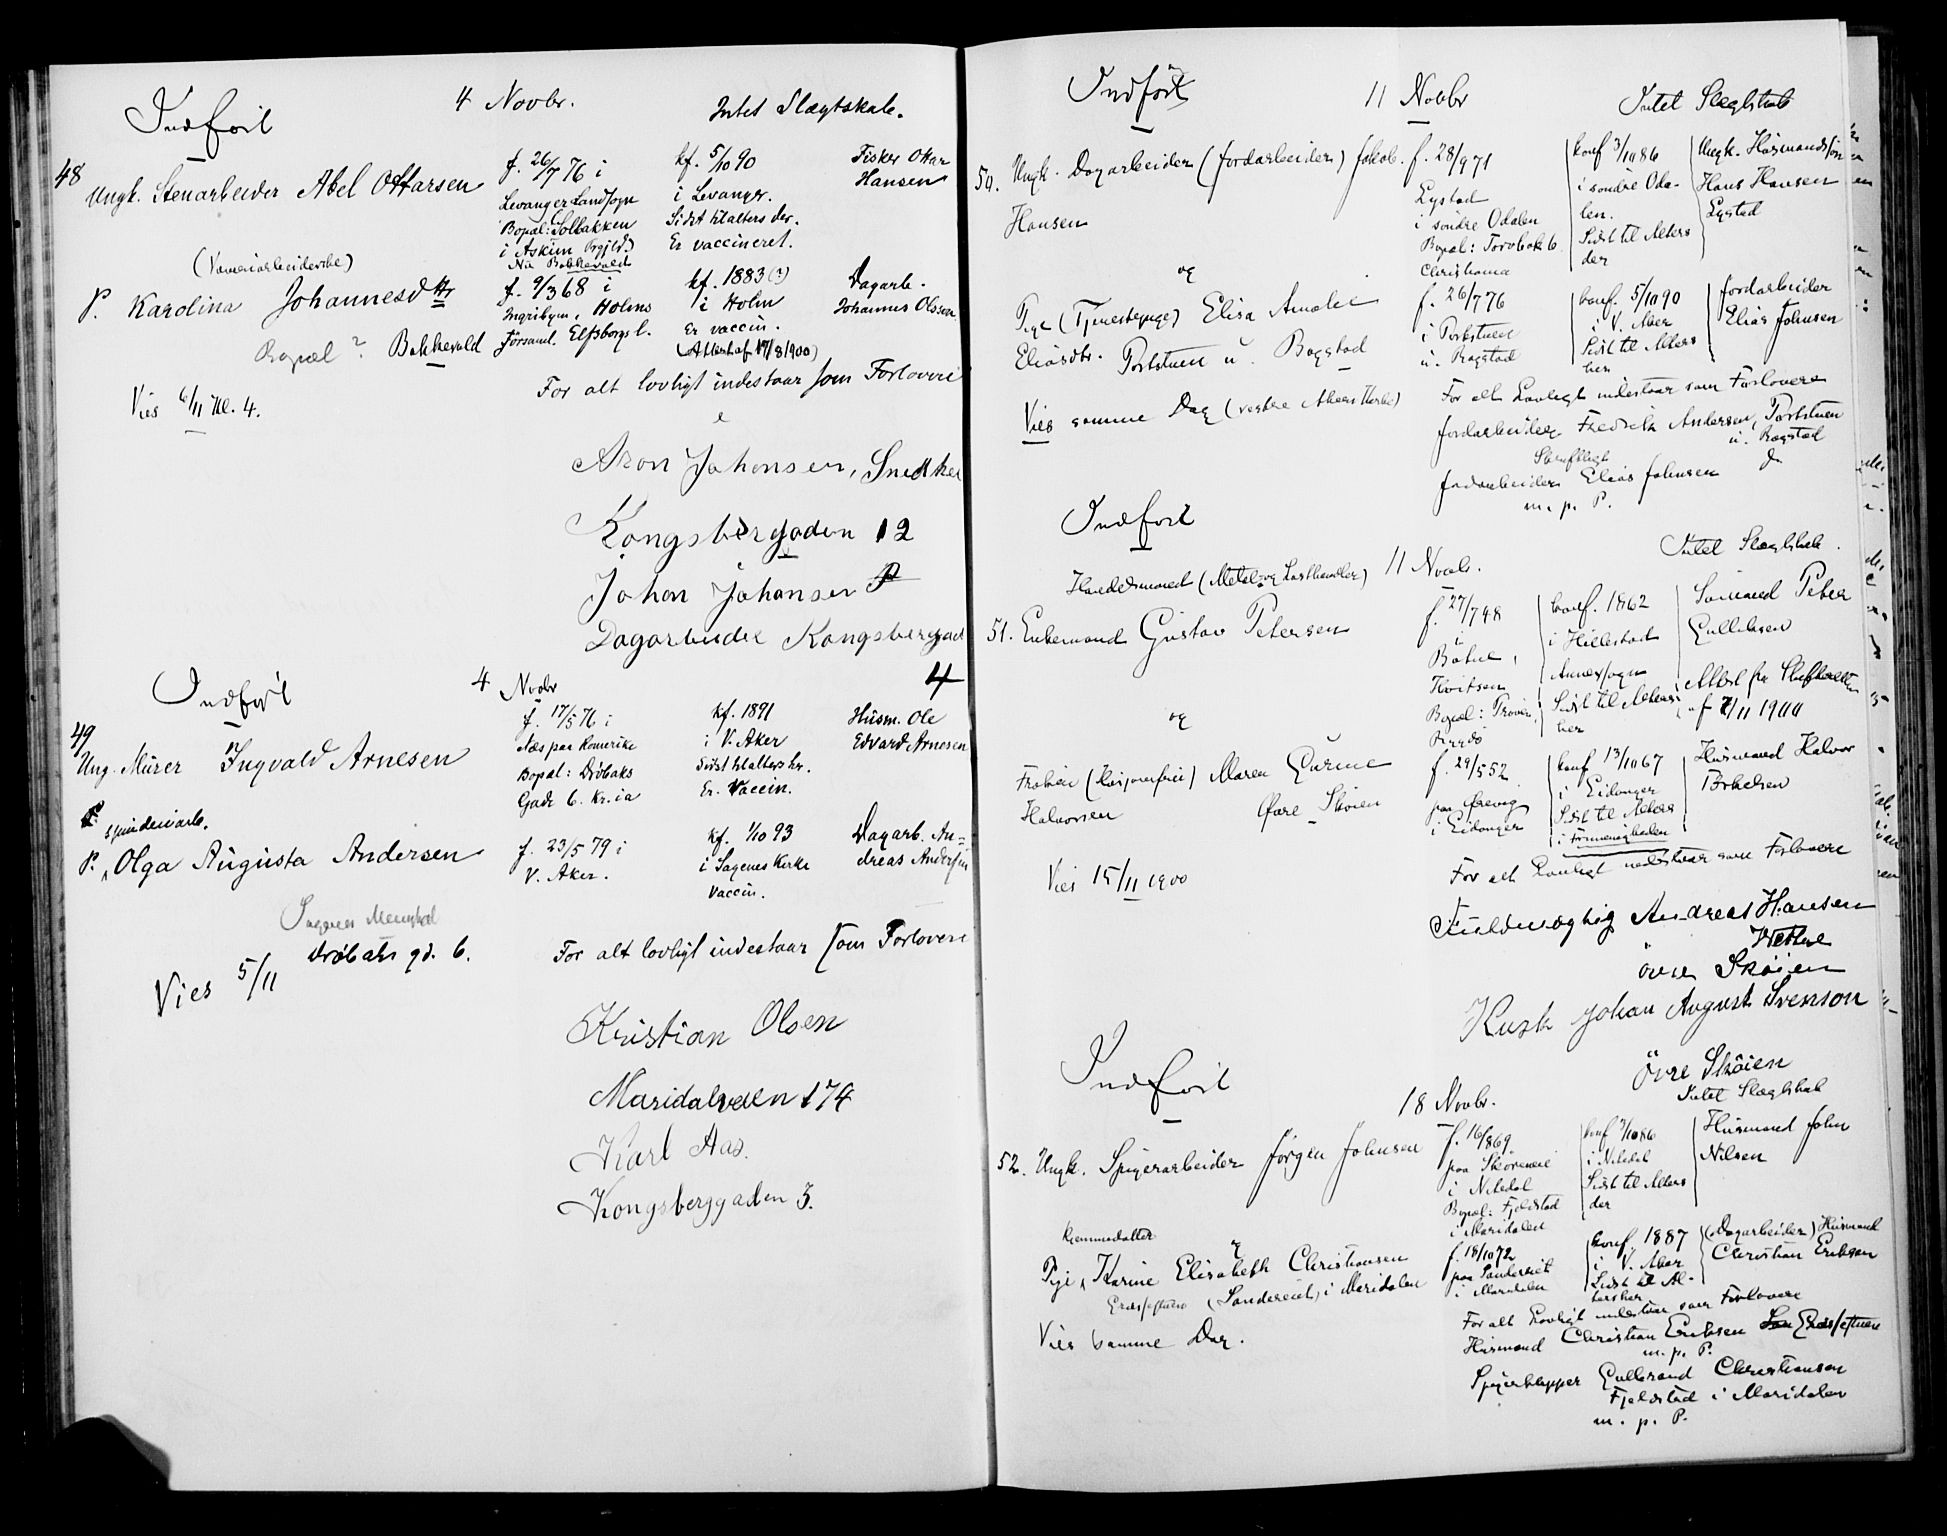 Indført
4 Novbr.
Intet Slægtskab.
48
Ungk. Stenarbeider Abel Ottarsen
f. 26/7 76 i
Levanger Landsogn
Bopæl: Solbakken
i Askim Prgjld.
Nu Bakkevold
kf. 5/10 90
i Levanger.
Sidst tilalters der.
Er vaccineret.
Fisker Ottar
Hansen
P. Karolina Johannesdtr
Bopæl? Bakkevold
f. 9/3 68 i
Ingribyn, Holms
Forsaml. Elfsborgs l.
kf. 1883 (?)
i Holm
Er vaccin.
(Attest af 17/8 1900)
Dagarb.
Johannes Olsson
Vies 6/11 Kl. 4.
For alt lovligt indestaar som Forlovere
Aron Johansen, Snedker
Kongsberggaden 12
Johan Johansen
Dagarbeider Kongsberggad
4
Indført
4 Novbr
49
Ung. Murer Ingvald Arnesen
f. 17/5 76 i
Næs paa Romerike
Bopæl: Drøbaks
Gade 6. Kr.ia
kf. 1891
i V. Aker
Sidst tilalters her.
Er Vaccin.
Husm. Ole
Edvard Arnesen
spinderiarb.
P. Olga Augusta Andersen
f. 23/5 79 i
V. Aker.
kf. 1/10 93
i Sagenes Kirke
Vaccin.
Dagarb. An-
dreas Andersen
Sagenes Menighed
Drøbaks gd. 6.
Vies 5/11
For alt lovligt indestaar som Forlovere
Kristian Olsen
Maridalsveien 174
Karl Aas.
Kongsberggaden 3.
Indført
11 Novbr
Intet Slægtskab
50. Ungk. Dagarbeider (Jordarbeider) Jakob
Hansen
f. 28/9 71
Lystad
i søndre Odalen
Bopæl: Torvbak 6
Christiania
konf 3/10 86
i søndre Oda-
len.
Sidst til Alters
der
Ungk. Husmandssøn
Hans Hansen
Lystad
og
Pige (Tjenestepige) Elisa Amalie
Eliasdtr. Portstuen u. Bogstad
f. 26/7 76
i Portstuen
u. Bogstad
konf. 5/10 90
i V. Aker
Sidst til Alters
her
Jordarbeider
Elias Johnsen
Vies samme Dag (vestre Akers Kirke)
For alt Lovligt indestaar som Forlovere
Jordarbeider Fredrik Andersen, Portstuen
u. Bogstad
Skriftligt
Jordarbeider Elias Johnsen do
m. p. P.
Indført
11 Novb.
Intet Slægtskab.
Handelsmand (Metal og Lasthandler)
51. Enkemand Gustav Petersen
f. 27/7 48
i
Botne,
Hvitsen
konf. 1862
i Hillestad
Annexsogn
Sidst til Alters
her
Sømand Peter
Gulliksen
Attest fra Skifteretten
af 7/11 1900
og
Halvorsen
Øvre Skøien
f. 29/5 52
i Eidanger
konf 13/10 67
i Eidanger
Sidst til Alters
i Frimenigheden
Husmand Halvor
Torkelsen
Vies 15/11 1900
For alt Lovligt indestaar som Forlovere
Fuldmægtig Andreas Hansen
øvre Skøien
Kusk Johan August Svenson
Övre Skøien
Indført
18 Novbr.
Intet Slægtskab
52. Ungk. Spigerarbeider Jørgen Johnsen
f. 16/8 69
i Nitedal
Bopæl: Fjeldstad
i Maridalen
konf 3/10 86
i Nitedal
Sidst til Alters
der
Husmand John
Nilsen
hjemmedatter
og
Pige, Karine Elisabeth Christiansen
(Sandereiet) i Maridalen
f. 18/10 72
paa Sandereiet
i Maridalen
konf. 1887
i V. Aker
Sidst til Al-
ters her
(Dagarbeider) Husmand
Christian Eriksen
Vies samme Dag.
For alt Lovligt indestaar som Forlovere
Husmand Christian Eriksen
m. p. P.
Spigerklipper Gulbrand Christiansen
Fjeldstad i Maridalen
m. p. P.